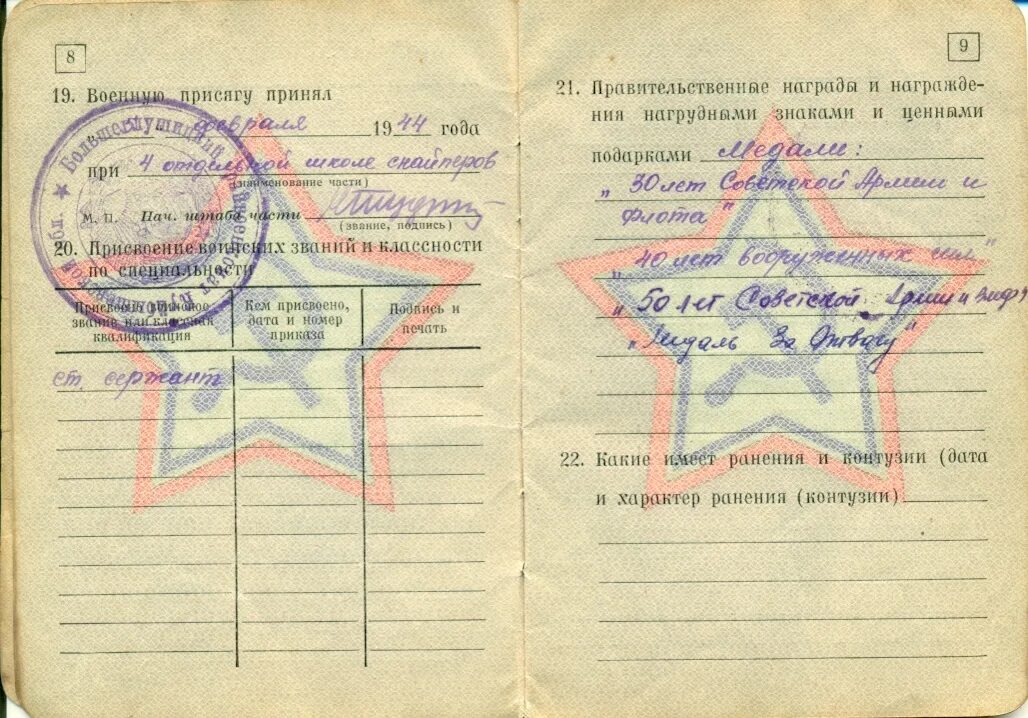 8
19. Военную присягу принял
февраля 1944 года
при 4 отдельной школе снайперов
(наименование части)
м. п. Нач. штаба части
(звание, подпись)
20. Присвоение воинских званий и классности
по специальности
Присвоено воинское звание или классная квалификация
Кем присвоено, дата и номер приказа
Подпись и печать
ст. сержант
★ Большеглушицкий
9
21. Правительственные награды и награжде-
ния нагрудными знаками и ценными
подарками Медали:
„30 лет Советской Армии и
Флота"
„40 лет вооруженных сил"
„50 лет Советской Армии и
„Медаль За Отвагу"
22. Какие имеет ранения и контузии (дата
и характер ранения (контузии)